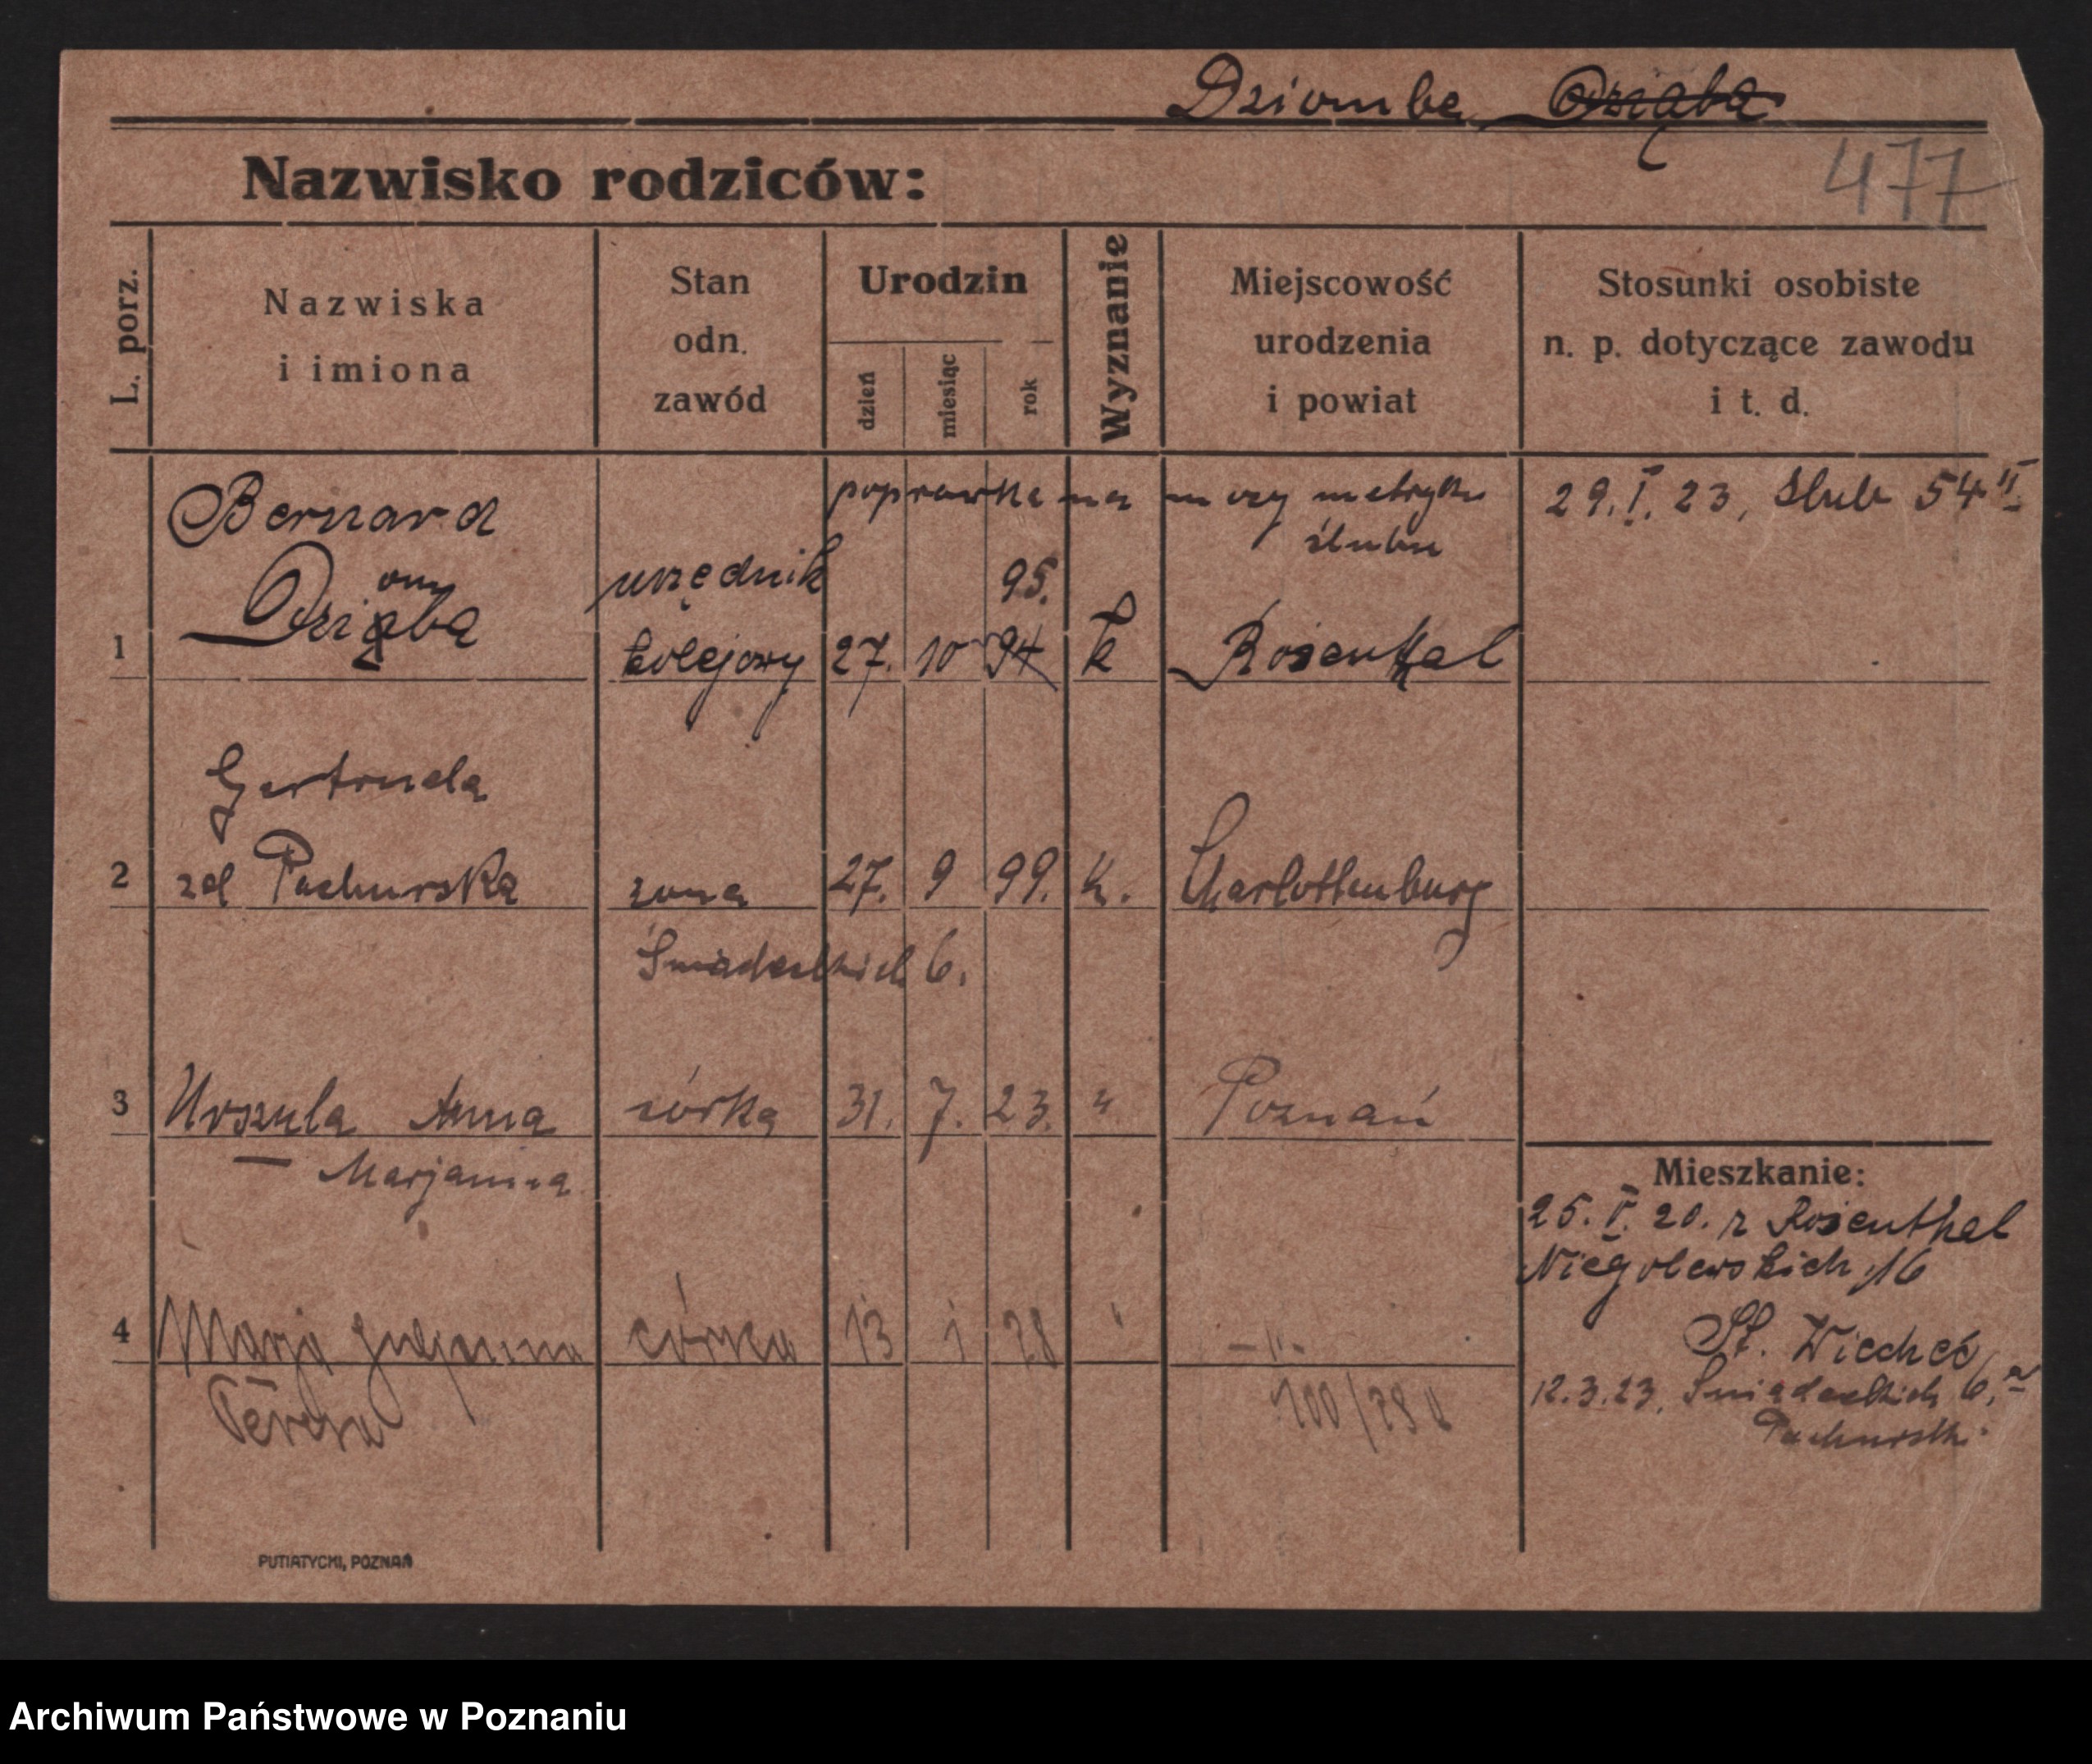 Dziomba Dziąba
477
Nazwisko rodziców:
L. porz.
Nazwiska
i imiona
Stan
odn.
zawód
Urodzin
dzień
miesiąc
rok
Wyznanie
Miejscowość
urodzenia
i powiat
Stosunki osobiste
n. p. dotyczące zawodu
i t. d.
poprawka na mocy metryki
ślubu
29. I. 23, ślub 54 II
Bernard
om
Dziąba
urzędnik
95.
1 kolejowy 27. 10 94 k Rosenthal
Gertruda
2 zd Pachurska żona 27. 9 99. k. Charlottenburg
Śniadeckich 6.
3 Urszula Anna córka 31. 7. 23. " Poznań
— Marjanna
4 Marja córka 13 1 28 " — " -
Teresa
100/28 u
Mieszkanie:
25. V. 20. z Rosenthal
Niegolewskich 16
St. Wiecheć
12.3.23. Śniadeckich 6, a
Pachurski
PUTIATYCKI, POZNAŃ
Archiwum Państwowe w Poznaniu